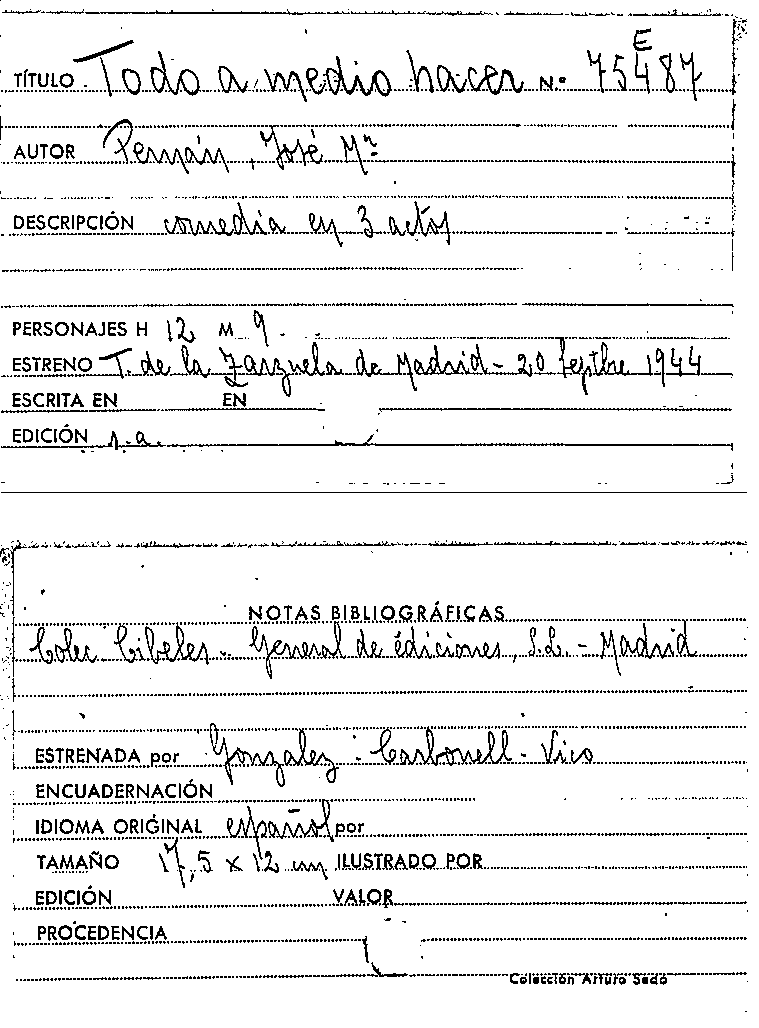 E
TÍTULO Todo a medio hacer N.º 75487
AUTOR Pemán, José Mª
DESCRIPCIÓN comedia en 3 actos
PERSONAJES H 12 M 9.
ESTRENO T. de la Zarzuela de Madrid - 20 Septbre 1944
ESCRITA EN EN
EDICIÓN s.a.
NOTAS BIBLIOGRÁFICAS
Colec Cibeles - General de ediciones, S.L. - Madrid
ESTRENADA por Gonzalez - Carbonell - Vico
ENCUADERNACIÓN
IDIOMA ORIGINAL español por
TAMAÑO 17,5 x 12 cm ILUSTRADO POR
EDICIÓN VALOR
PROCEDENCIA
Colección Arturo Sedó